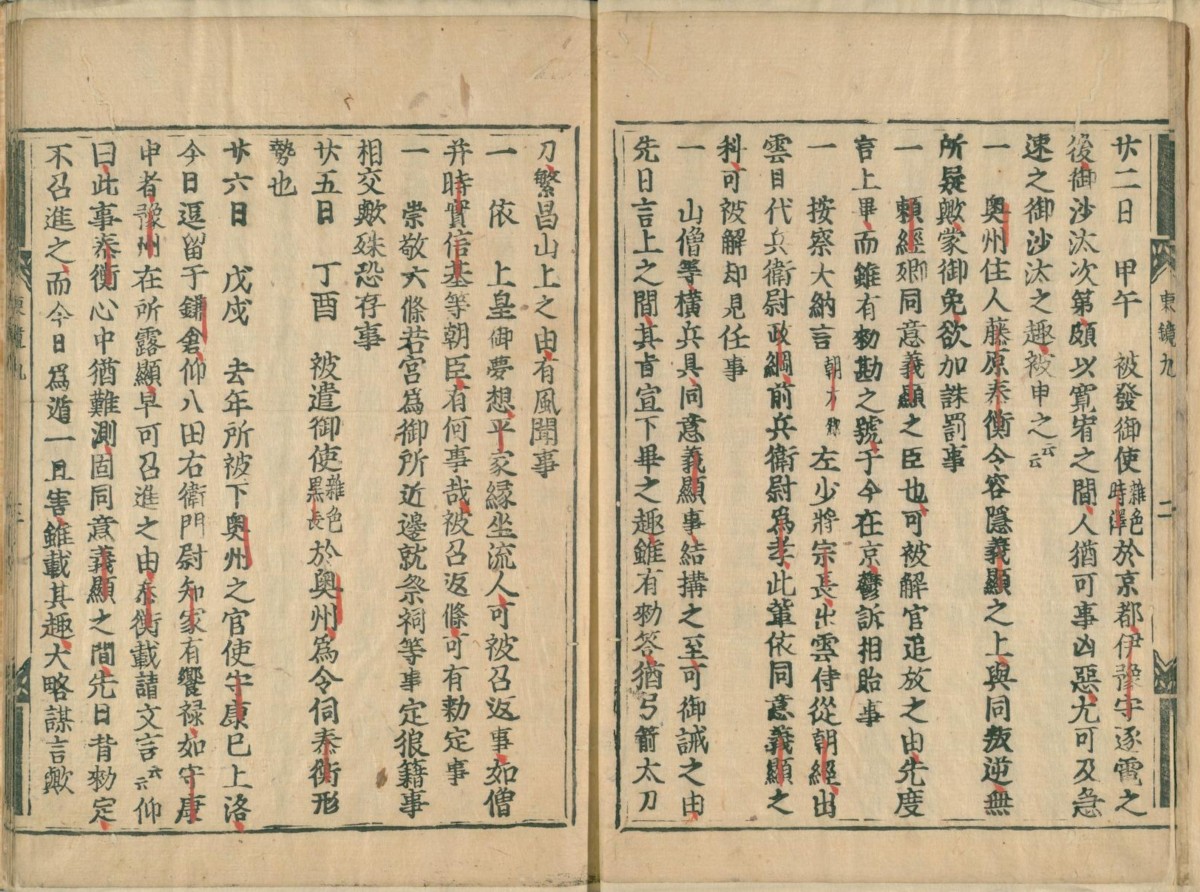 東鏡九
二
廿二日 甲午 被發御使雜色時澤於京都伊豫守逐電之
後御沙汰次第頗以寛宥之間人猶可事凶惡尤可及急
速之御沙汰之趣被申之云云
一 奥州住人藤原泰衡令容隱義顯之上與同叛逆無
所疑歟蒙御免欲加誅罰事
一 頼經卿同意義顯之臣也可被解官追放之由先度
言上畢而雖有勅勘之號于今在京鬱訴相貽事
一 按察大納言朝方卿左少將宗長出雲侍從朝經出
雲目代兵衛尉政綱前兵衛尉爲孝此輩依同意義顯之
科可被解却見任事
一 山僧等横兵具同意義顯事結搆之至可御誡之由
先日言上之間其旨宣下畢之趣雖有勅答猶弓箭太刀
刀繁昌山上之由有風聞事
一 依 上皇御夢想平家縁坐流人可被召返事如僧
并時實信基等朝臣有何事哉被召返條可有勅定事
一 崇敬六條若宮爲御所近邊就祭祠等事定狼籍事
相交歟殊恐存事
廿五日 丁酉 被遣御使雜色里長於奥州爲令伺泰衡形
勢也
廿六日 戊戌 去年所被下奥州之官使守康已上洛
今日逗留于鎌倉仰八田右衛門尉知家有饗禄如守康
申者豫州在所露顯早可召進之由泰衡載請文言云云仰
曰此事泰衡心中猶難測固同意義顯之間先日背勅定
不召進之而今日爲遁一旦害雖載其趣大略謀言歟